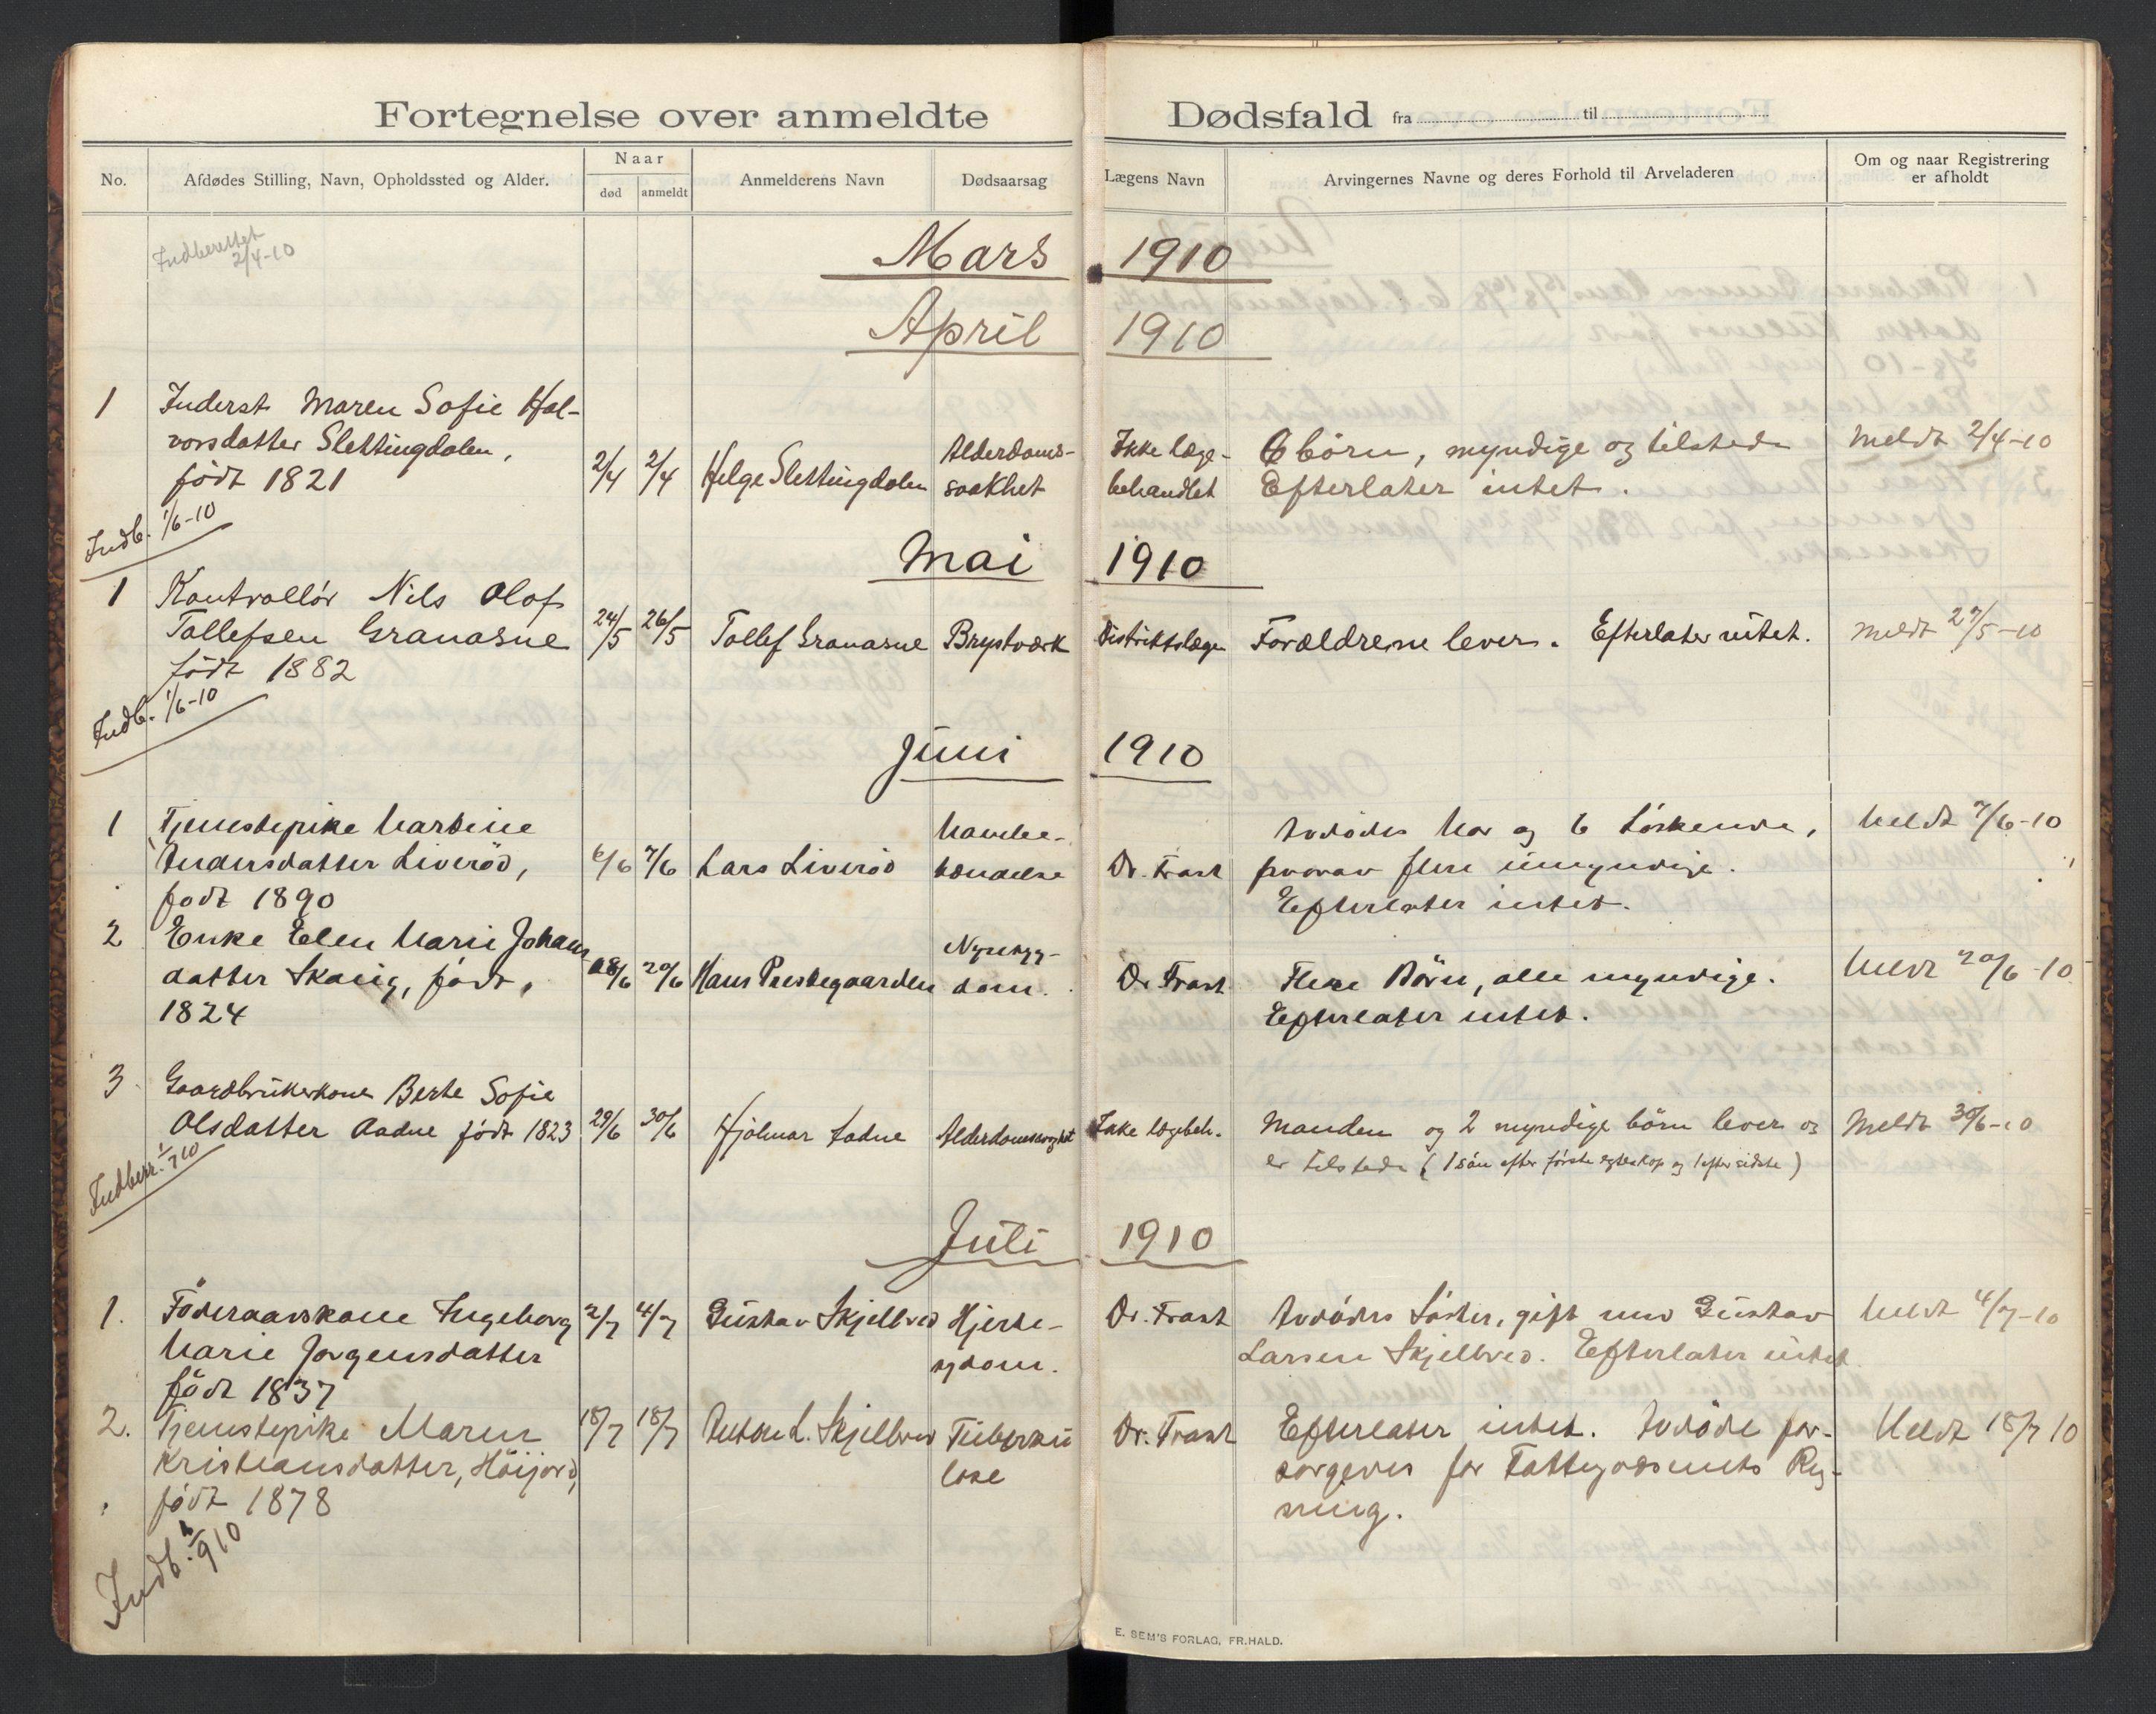 Fortegnelse over anmeldte Dødsfald fra til
No.
Afdødes Stilling, Navn, Opholdssted og Alder.
Naar
død anmeldt
Anmelderens Navn
Dødsaarsag
Lægens Navn
Arvingernes Navne og deres Forhold til Arveladeren
Om og naar Registrering
er afholdt
Indberettet
2/4-10
Mars 1910
April 1910
1 Inderst Maren Sofie Hal-
vorsdatter Slettingdalen,
født 1821
2/4 2/4 Helge Slettingdalen
Alderdoms-
svakhet
Ikke læge-
behandlet
6 børn, myndige og tilstede
Efterlater intet.
Meldt 2/4-10
Indb. 1/6-10
Mai 1910
1 Kontrollør Nils Olof
Tollefsen Granasne
født 1882
24/5 26/5 Tollef Granasne Brystværk Distriktslægen Forældrene lever. Efterlater intet. Meldt 27/5-10
Indb. 1/6-10
Juni 1910
1 Tjenestepike Martine
Andersdatter Liverød,
født 1890
6/6 7/6 Lars Liverød
Dr. Frant
Avdødes Mor og 6 Søskende,
hvorav flere umyndige.
Efterlater intet.
Meldt 7/6-10
2 Enke Elen Marie Johans-
datter Skaug, født,
1824
18/6 20/6 Hans Prestegaarden
Nyresyg-
dom.
Dr Frant
Flere Børn, alle myndige.
Efterlater intet.
Meldt 20/6-10
3 Gaardbrukerkone Berte Sofie
Olsdatter Aadne født 1823
29/6 30/6 Hjalmar Aadne Alderdomssvakhet Ikke lægebeh.
Manden og 2 myndige børn lever og
er tilstede (1 søn efter første egteskap og 1 efter sidste)
Meldt 30/6-10
Indberr. 1/7 10
Juli 1910
1. Føderaadskone Ingeborg
Marie Jørgensdatter
født 1837
2/7 4/7 Gustav Skjelbred
Hjerte-
sygdom.
Dr. Frant
Avdødes Søster, gift med Gustav
Larsen Skjelbred. Efterlater intet
Meldt 4/7-10
2. Tjenestepike Maren
Kristiansdatter, Høijord,
født 1878
18/7 18/7 Anton L. Skjelbred
Tuberku
lose
Dr. Frant
Efterlater intet. Avdøde for-
sørgedes for Fattigvæsenets Reg-
ning.
Meldt 18/7 10
Indb. 1/9 10
E. SEM'S FORLAG, FR.HALD.